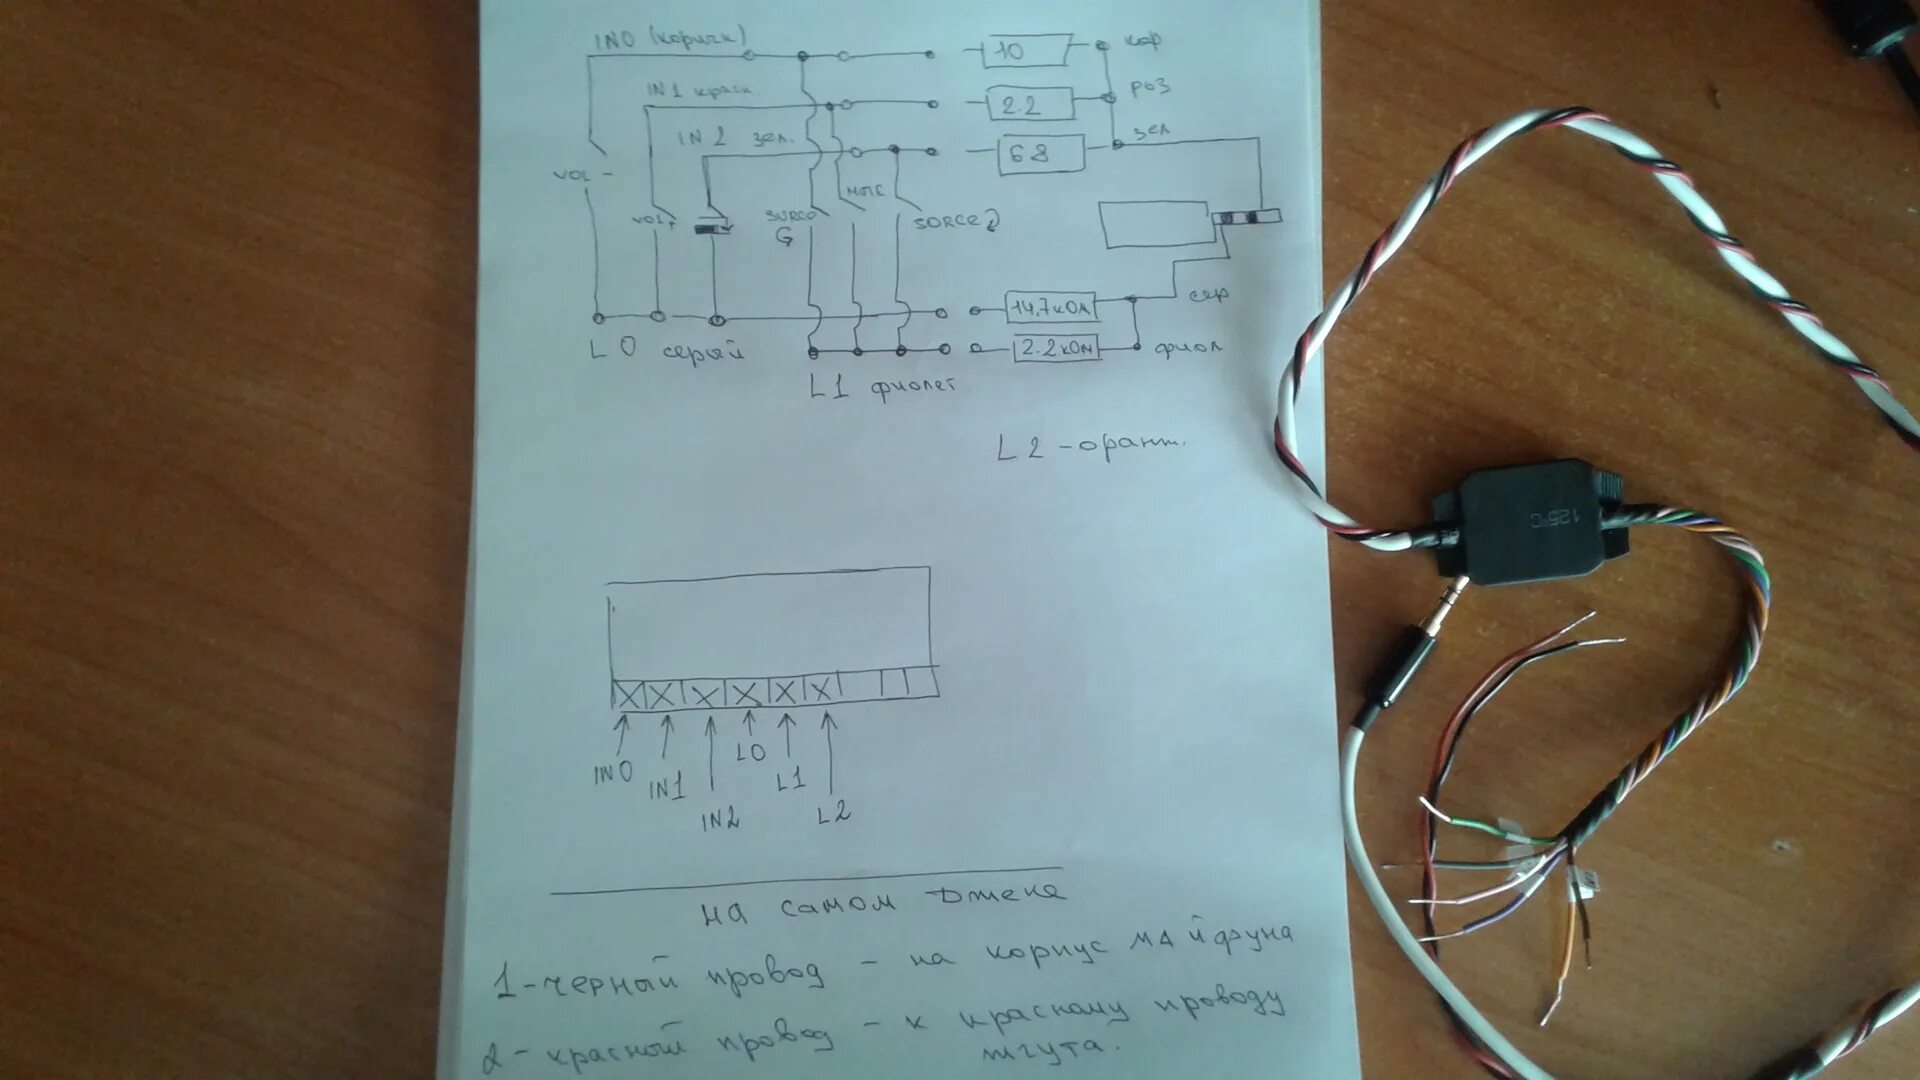 IN0 (коричн)
IN1 красн.
IN2 зел.
10
кор
2.2
роз
68
зел
VOL -
VOL+
SURCE
G
MUTE
SORCE 2
14,7кОм
сер
2.2кОм
фиол
L0 серый
L1 фиолет
L2 - оранж.
IN0
IN1
IN2
L0
L1
L2
на самом джеке
1 - черный провод - на корпус майфуна
2 - красный провод - к красному проводу
жгута.
125°C